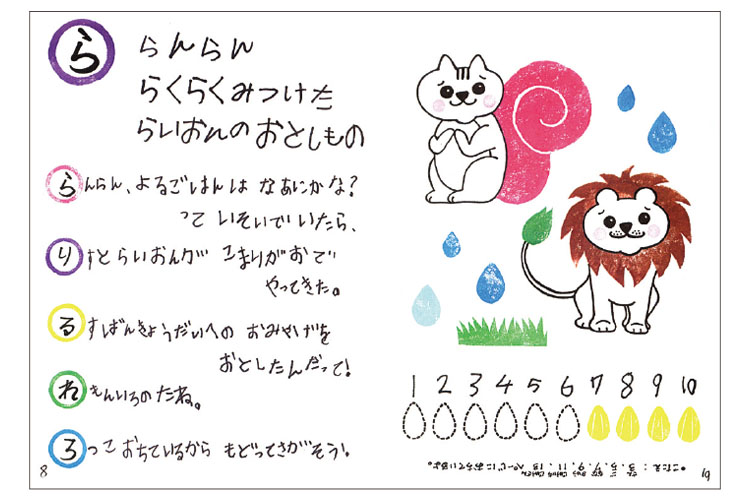 ら
らんらん
らくらくみつけた
らいおんのおとしもの
らんらん、よるごはんは なあにかな?
って いそいでいたら、
りすとらいおんが こまりがおで
やってきた。
るすばんきょうだいへの おみやげを
おとしたんだって!
れもんいろの たね。
ろっこ おちているから もどってさがそう!
1 2 3 4 5 6 7 8 9 10
•こたえ:3、5、7、9、11、13 ページにおちているよ。
8